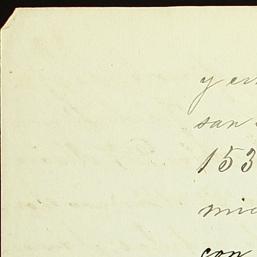 y en
san
153
mie
con